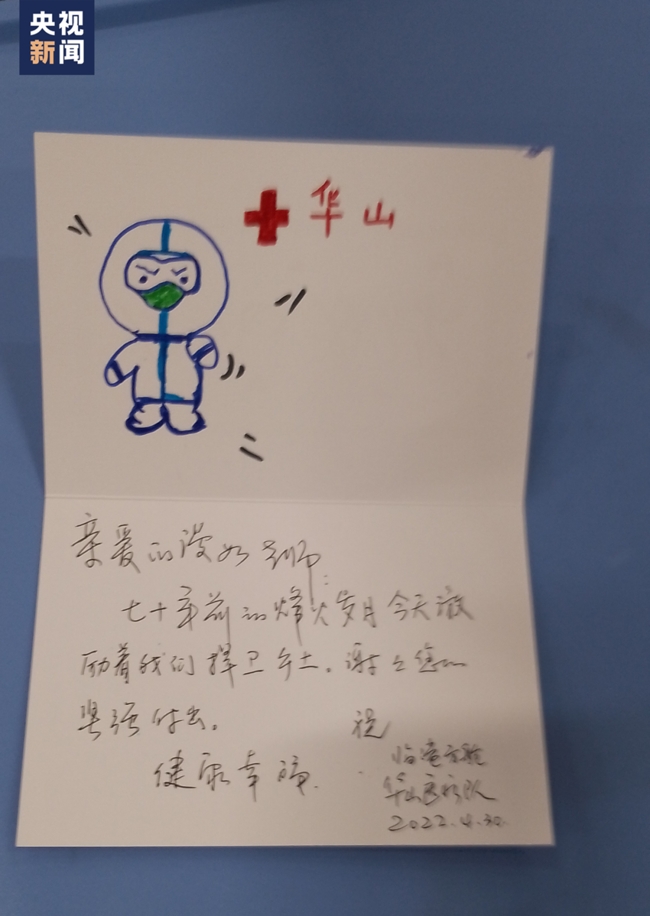 央视
新闻
华山
亲爱的
七十年前的烽火岁月今天激
励着我们捍卫乡土。谢谢您的
坚强付出。
祝
健康幸福
临港方舱
华山医疗队
2022.4.30.